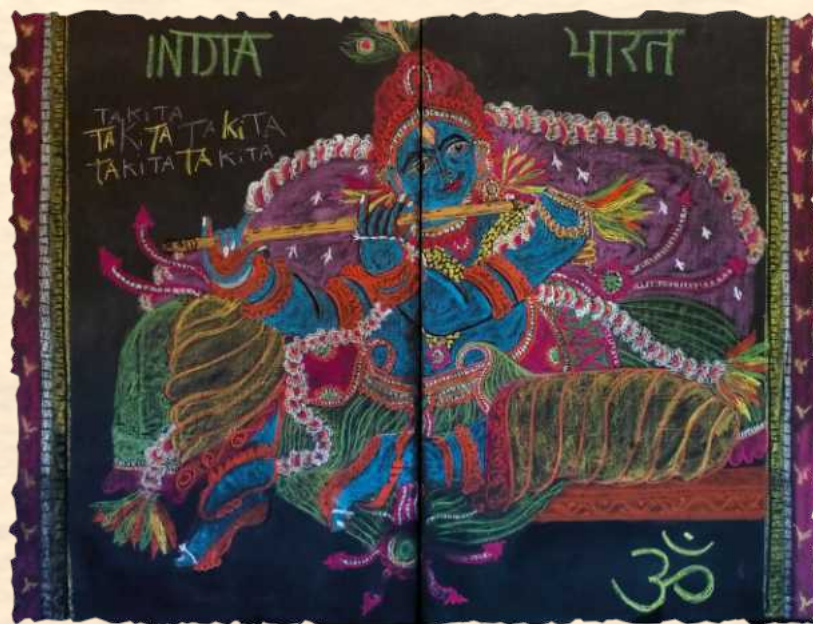 INDIA
भारत
TAKITA
TAKITATAKITA
TAKITATAKITA
ॐ